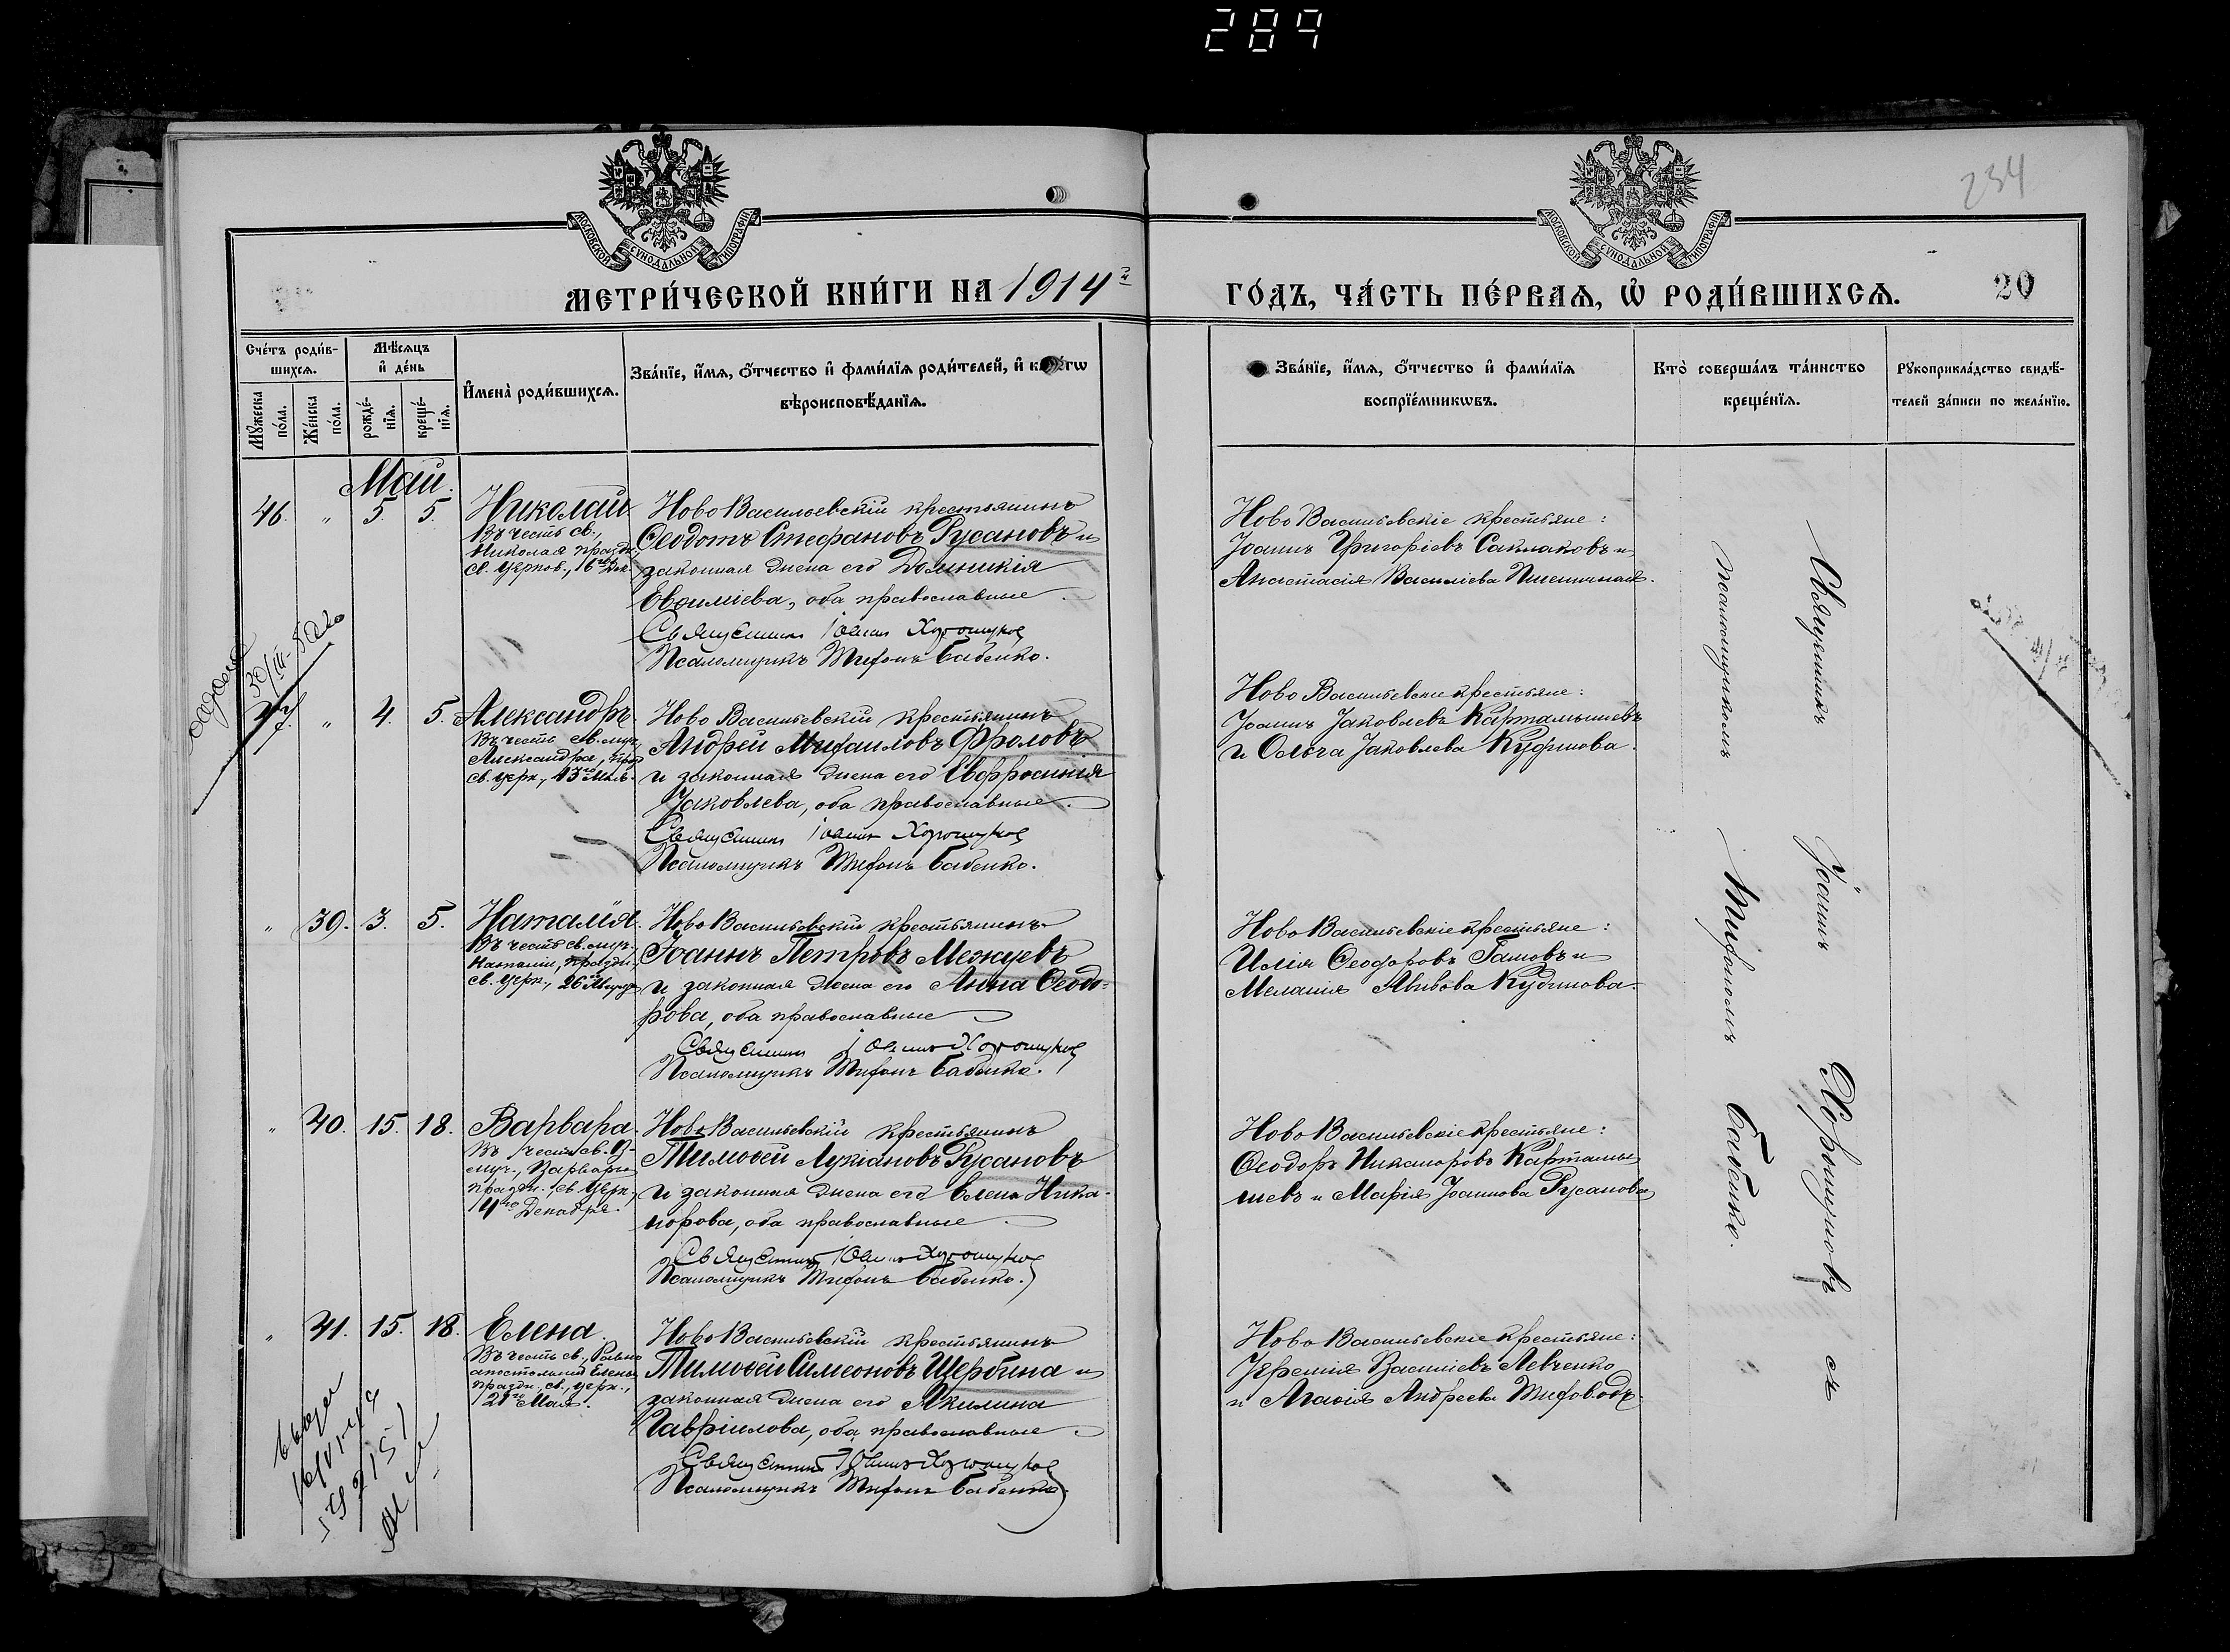 289
234
МОСКОВСКОЙ СѴНОДАЛЬНОЙ ТИПОГРАФІИ
МОСКОВСКОЙ СѴНОДАЛЬНОЙ ТИПОГРАФІИ
МЕТРИ́ЧЕСКОЙ КНИ́ГИ НА 1914 г
ГО́ДЪ, ЧА́СТЬ ПЕ́РВАѦ, Ѡ҆ РОДИ́ВШИХСѦ.
20
Сче́тъ роди́в-
шихсѧ.
Мꙋ́жеска
по́ла.
Же́нска
по́ла.
Мѣ́сѧцъ
и҆ де́нь
рожде́-
нїѧ.
креще́-
нїѧ.
И҆мена̀ роди́вшихсѧ.
Зва́нїе, и҆́мѧ, ѻ҆́тчество и҆ фами́лїѧ роди́телей, и҆
вѣроисповѣ́данїѧ.
Зва́нїе, и҆́мѧ, ѻ҆́тчество и҆ фами́лїѧ
воспрїе́мникѡвъ.
Кто̀ соверша́лъ та́инство
креще́нїѧ.
Рꙋкоприкла́дство свидѣ́-
телей за́писи по жела́нїю.
Май.
46. " 5. 5. Николай
Въ честь св.,
Николая праздн.
св. церков., 6го Дек.
Ново Васильевскій крестьянинъ
Ѳеодотъ Стефановъ Русановъ и
законная жена его Домникія
Евѳиміева, оба православные
Священникъ Іоаннъ Хорошуновъ
Псаломщикъ Тихонъ Бабенко.
Ново Васильевскіе крестьяне:
Іоаннъ Григоріевъ Саклаковъ и
Анастасія Василіева Пшеничная.
" 4. 5. Александръ.
Въ честь св. муч.
Александра, празд.
св. церк., 13го Мая.
Ново Васильевскій крестьянинъ
Андрей Михаиловъ Фроловъ
и законная жена его Евфросинія
Іаковлева, оба православные.
Священникъ Іоаннъ Хорошуновъ
Псаломщикъ Тихонъ Бабенко.
Ново Васильевскіе крестьяне:
Іоаннъ Іаковлевъ Картамышевъ
и Ольга Іаковлева Кудинова.
" 39. 3. 5. Наталія.
Въ честь св. муч.
Наталіи, праздн.
св. церк., 26 Августа
Ново Васильевскій крестьянинъ
Іоаннъ Петровъ Межуевъ
и законная жена его Анна Ѳеодо-
рова, оба православные
Священникъ Іоаннъ Хорошуновъ
Псаломщикъ Тихонъ Бабенко.
Ново Васильевскіе крестьяне:
Илія Ѳеодоровъ и
Меланія Кудинова.
" 40. 15. 18. Варвара.
Въ честь св. В-
муч., Варвары
праздн. св. церк.,
4го Декабря.
Ново Васильевскій крестьянинъ
Тимоѳей Лукіановъ Русановъ
и законная жена его Елена Ника-
норова, оба православные
Священникъ Іоаннъ Хорошуновъ
Псаломщикъ Тихонъ Бабенко.
Ново Васильевскіе крестьяне:
Ѳеодоръ Никаноровъ Картамы
шевъ и Марія Іоаннова Русанова
" 41. 15. 18. Елена.
Въ честь св., Равно
апостольной Елены
праздн., св., церк.,
21го Мая.
Ново Васильевскій крестьянинъ
Тимоѳей Симеоновъ Щербина и
законная жена его Акилина
Гавріилова, оба православные
Священникъ Іоаннъ Хорошуновъ
Псаломщикъ Тихонъ Бабенко.
Ново Васильевскіе крестьяне:
Іеремія Василіевъ Левченко
и Агаѳія Андреева
Священникъ Іоаннъ Хорошуновъ съ
псаломщикомъ Тихономъ Бабенко.